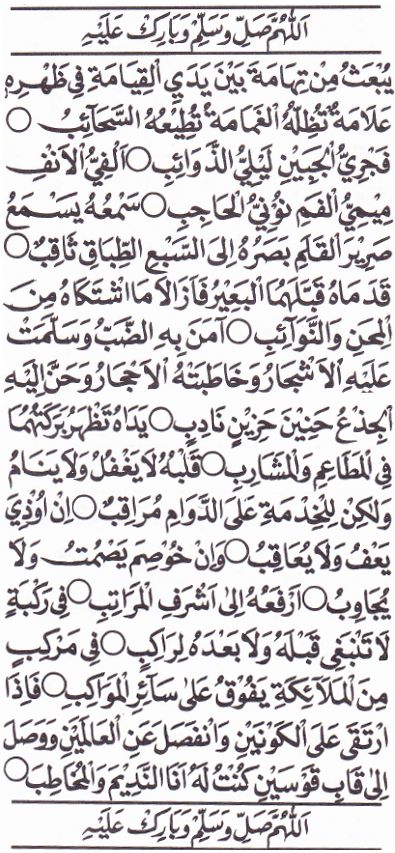 اَللّٰهُمَّ صَلِّ وَسَلِّمْ وَبَارِكْ عَلَيْهِ
يُبْعَثُ مِنْ تِهَامَةَ بَيْنَ يَدَيِ الْقِيَامَةِ فِي ظَهْرِهِ
عَلَامَةٌ تُظِلُّهُ الْغَمَامَةُ تُطِيْعُهُ السَّحَآئِبُ ○
فَجْرِيُّ الْجَبِيْنِ لَيْلِيُّ الذَّوَآئِبِ ○ اَلْفِيُّ الْاَنْفِ
مِيْمِيُّ الْفَمِ نُوْنِيُّ الْحَاجِبِ ○ سَمْعُهُ يَسْمَعُ
صَرِيْرَ الْقَلَمِ بَصَرُهُ اِلَى السَّبْعِ الطِّبَاقِ ثَاقِبٌ ○
قَدَمَاهُ قَبَّلَهُمَا الْبَعِيْرُ فَاَزَالَا مَا اشْتَكَاهُ مِنَ
الْمِحَنِ وَالنَّوَآئِبِ ○ اٰمَنَ بِهِ الضَّبُّ وَسَلَّمَتْ
عَلَيْهِ الْاَشْجَارُ وَخَاطَبَتْهُ الْاَحْجَارُ وَحَنَّ اِلَيْهِ
الْجِذْعُ حَنِيْنَ حَزِيْنٍ نَادِبٍ ○ يَدَاهُ تَظْهَرُ بَرَكَتُهُمَا
فِي الْمَطَاعِمِ وَالْمَشَارِبِ ○ قَلْبُهُ لَا يَغْفُلُ وَلَا يَنَامُ
وَلٰكِنْ لِلْخِدْمَةِ عَلَى الدَّوَامِ مُرَاقِبٌ ○ اِنْ اُوْذِيَ
يَعْفُ وَلَا يُعَاقِبُ ○ وَاِنْ خُوْصِمَ يَصْمُتُ وَلَا
يُجَاوِبُ ○ اَرْفَعُهُ اِلَى اَشْرَفِ الْمَرَاتِبِ ○ فِي رَكْبَةٍ
لَا تَنْبَغِي قَبْلَهُ وَلَا بَعْدَهُ لِرَاكِبٍ ○ فِي مَرْكَبٍ
مِنَ الْمَلَآئِكَةِ يَفُوْقُ عَلَى سَآئِرِ الْمَوَاكِبِ ○ فَاِذَا
ارْتَقَى عَلَى الْكَوْنَيْنِ وَانْفَصَلَ عَنِ الْعَالَمَيْنِ وَوَصَلَ
اِلَى قَابِ قَوْسَيْنِ كُنْتُ لَهُ اَنَا النَّدِيْمَ وَالْمُخَاطِبَ ○
اَللّٰهُمَّ صَلِّ وَسَلِّمْ وَبَارِكْ عَلَيْهِ